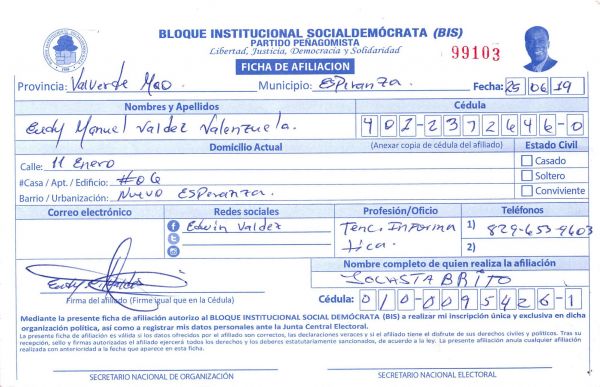 BLOQUE INSTITUCIONAL SOCIALDEMÓCRATA (BIS)
PARTIDO PEÑAGOMISTA
Libertad, Justicia, Democracia y Solidaridad
99103
FICHA DE AFILIACION
Provincia: Valverde Mao. Municipio: Esperanza. Fecha: 25 06 19
Nombres y Apellidos Cédula
Eudy Manuel Valdez Valenzuela. 402-2372646-0
Domicilio Actual (Anexar copia de cédula del afiliado) Estado Civil
Calle: 11 Enero Casado
#Casa / Apt. / Edificio: #06 Soltero
Barrio / Urbanización: Nuevo Esperanza. Conviviente
Correo electrónico Redes sociales Profesión/Oficio Teléfonos
Edwin Valdez Tenc. Informa 1) 829-653-9603
tica. 2)
Nombre completo de quien realiza la afiliación
Jocasta Brito
Firma del afiliado (Firme igual que en la Cédula) Cédula: 010-0095426-1
Mediante la presente ficha de afiliación autorizo al BLOQUE INSTITUCIONAL SOCIAL DEMÓCRATA (BIS) a realizar mi inscripción única y exclusiva en dicha
organización política, así como a registrar mis datos personales ante la Junta Central Electoral.
La presente ficha de afiliación es válida si los datos ofrecidos por el afiliado son correctos, las declaraciones veraces y si el titular tiene el disfrute de sus derechos civiles y políticos. Tras su
recepción, sello y firmas autorizados el afiliado ejercerá todos los derechos y los deberes estatutariamente sancionados, de acuerdo a la ley. La presente afiliación anula cualquier afiliación
realizada con anterioridad a la fecha que aparece en esta ficha.
SECRETARIO NACIONAL DE ORGANIZACIÓN SECRETARIO NACIONAL ELECTORAL